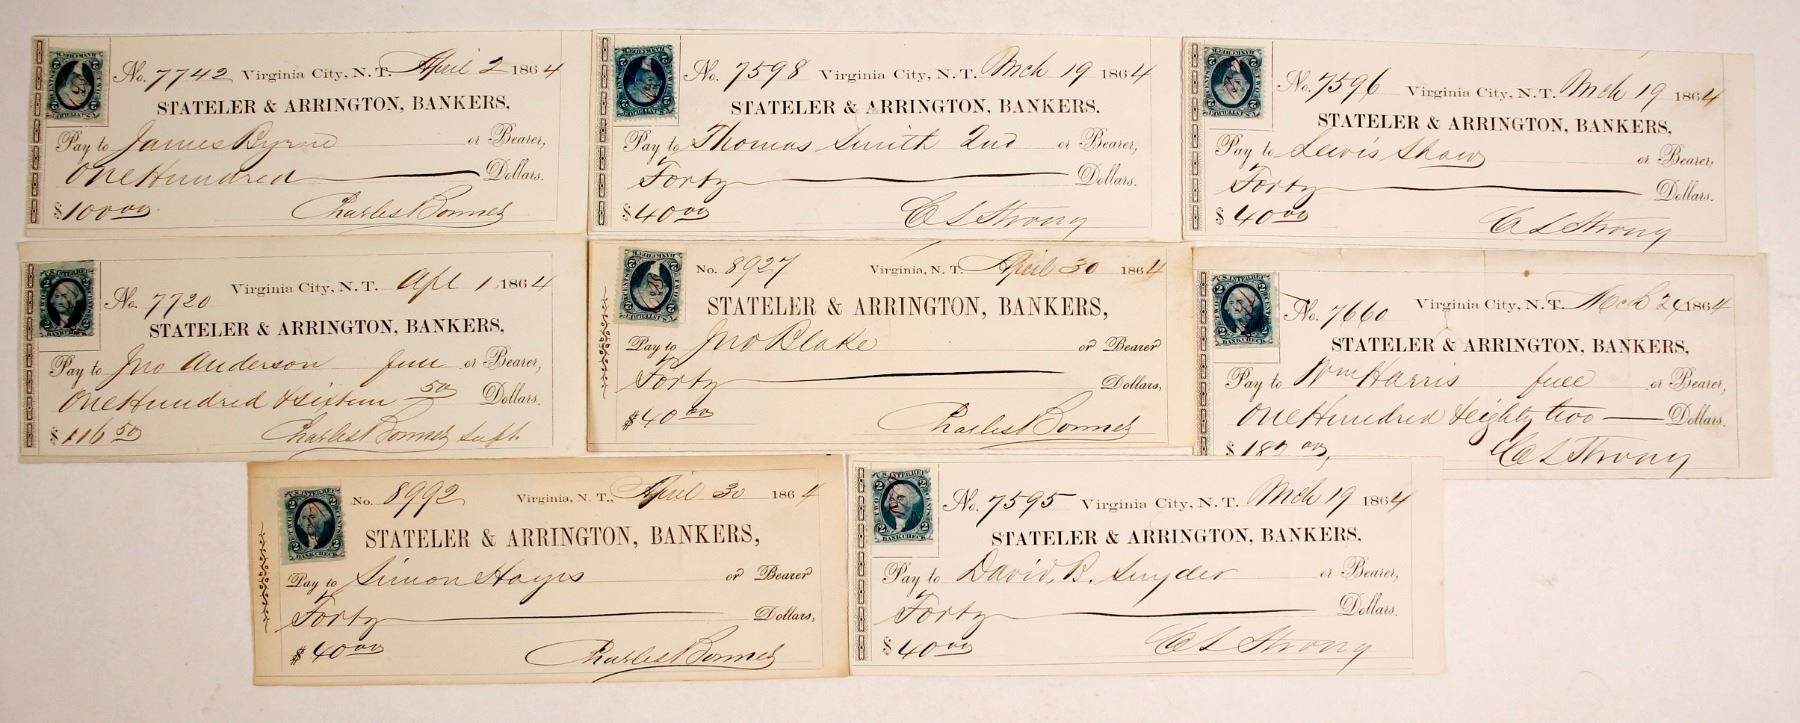 No. 7742 Virginia City, N. T. April 2 1864
STATELER & ARRINGTON, BANKERS,
Pay to James Byrne or Bearer,
One Hundred Dollars.
$100.00
Charles Bonner
No. 7598 Virginia City, N. T. Mch 19 1864
STATELER & ARRINGTON, BANKERS,
Pay to Thomas Smith 2nd or Bearer,
Forty Dollars.
$40.00
C L Strong
No. 7596 Virginia City, N. T. Mch 19 1864
STATELER & ARRINGTON, BANKERS,
Pay to Lewis Shaw or Bearer,
Forty Dollars.
$40.00
C L Strong
U.S. INTER. REV.
No. 7720 Virginia City, N. T. Apl 1 1864
STATELER & ARRINGTON, BANKERS,
Pay to Jno Anderson or Bearer,
One Hundred & Sixteen 50 Dollars.
$116 50
Charles Bonner Supt.
No. 8927 Virginia, N. T. April 30 1864
STATELER & ARRINGTON, BANKERS,
Pay to Jno Blake or Bearer
Forty Dollars,
$40.00
Charles Bonner
U.S. INTER. REV.
TWO CENTS
BANK CHECK
No. 7660 Virginia City, N. T. Mch 1864
STATELER & ARRINGTON, BANKERS,
Pay to Wm Harris or Bearer,
One Hundred & eighty two Dollars.
$182.00
C L Strong
U.S. INTER. REV.
TWO CENTS
2 2
BANK CHECK
No. 8992 Virginia, N. T., April 30 1864
STATELER & ARRINGTON, BANKERS,
Pay to Simon Hayes or Bearer
Forty Dollars,
$40.00
Charles Bonner
U.S. INTER. REV.
TWO CENTS
2 2
BANK CHECK
No. 7595 Virginia City, N. T. Mch 19 1864
STATELER & ARRINGTON, BANKERS,
Pay to David B. Snyder or Bearer,
Forty Dollars.
$40.00
C L Strong